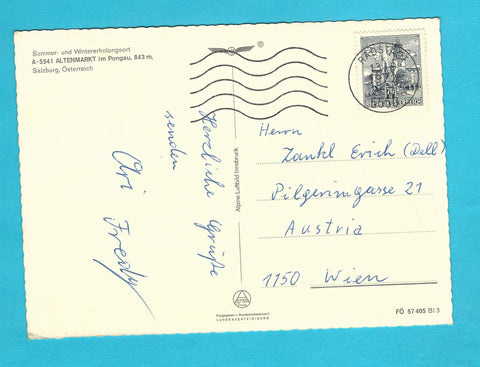 Sommer- und Wintererholungsort
A-5541 ALTENMARKT im Pongau, 843 m,
Salzburg, Österreich
®
Herzliche Grüße
senden
Ari Fredy
Alpine Luftbild Innsbruck
RADS
Herrn
Zankl Erich (Dell)
Pilgerimgasse 21
Austria
1150 Wien
Freigegeben v. Bundesministerium f.
LANDESVERTEIDIGUNG
FÖ 57405 Bl 3